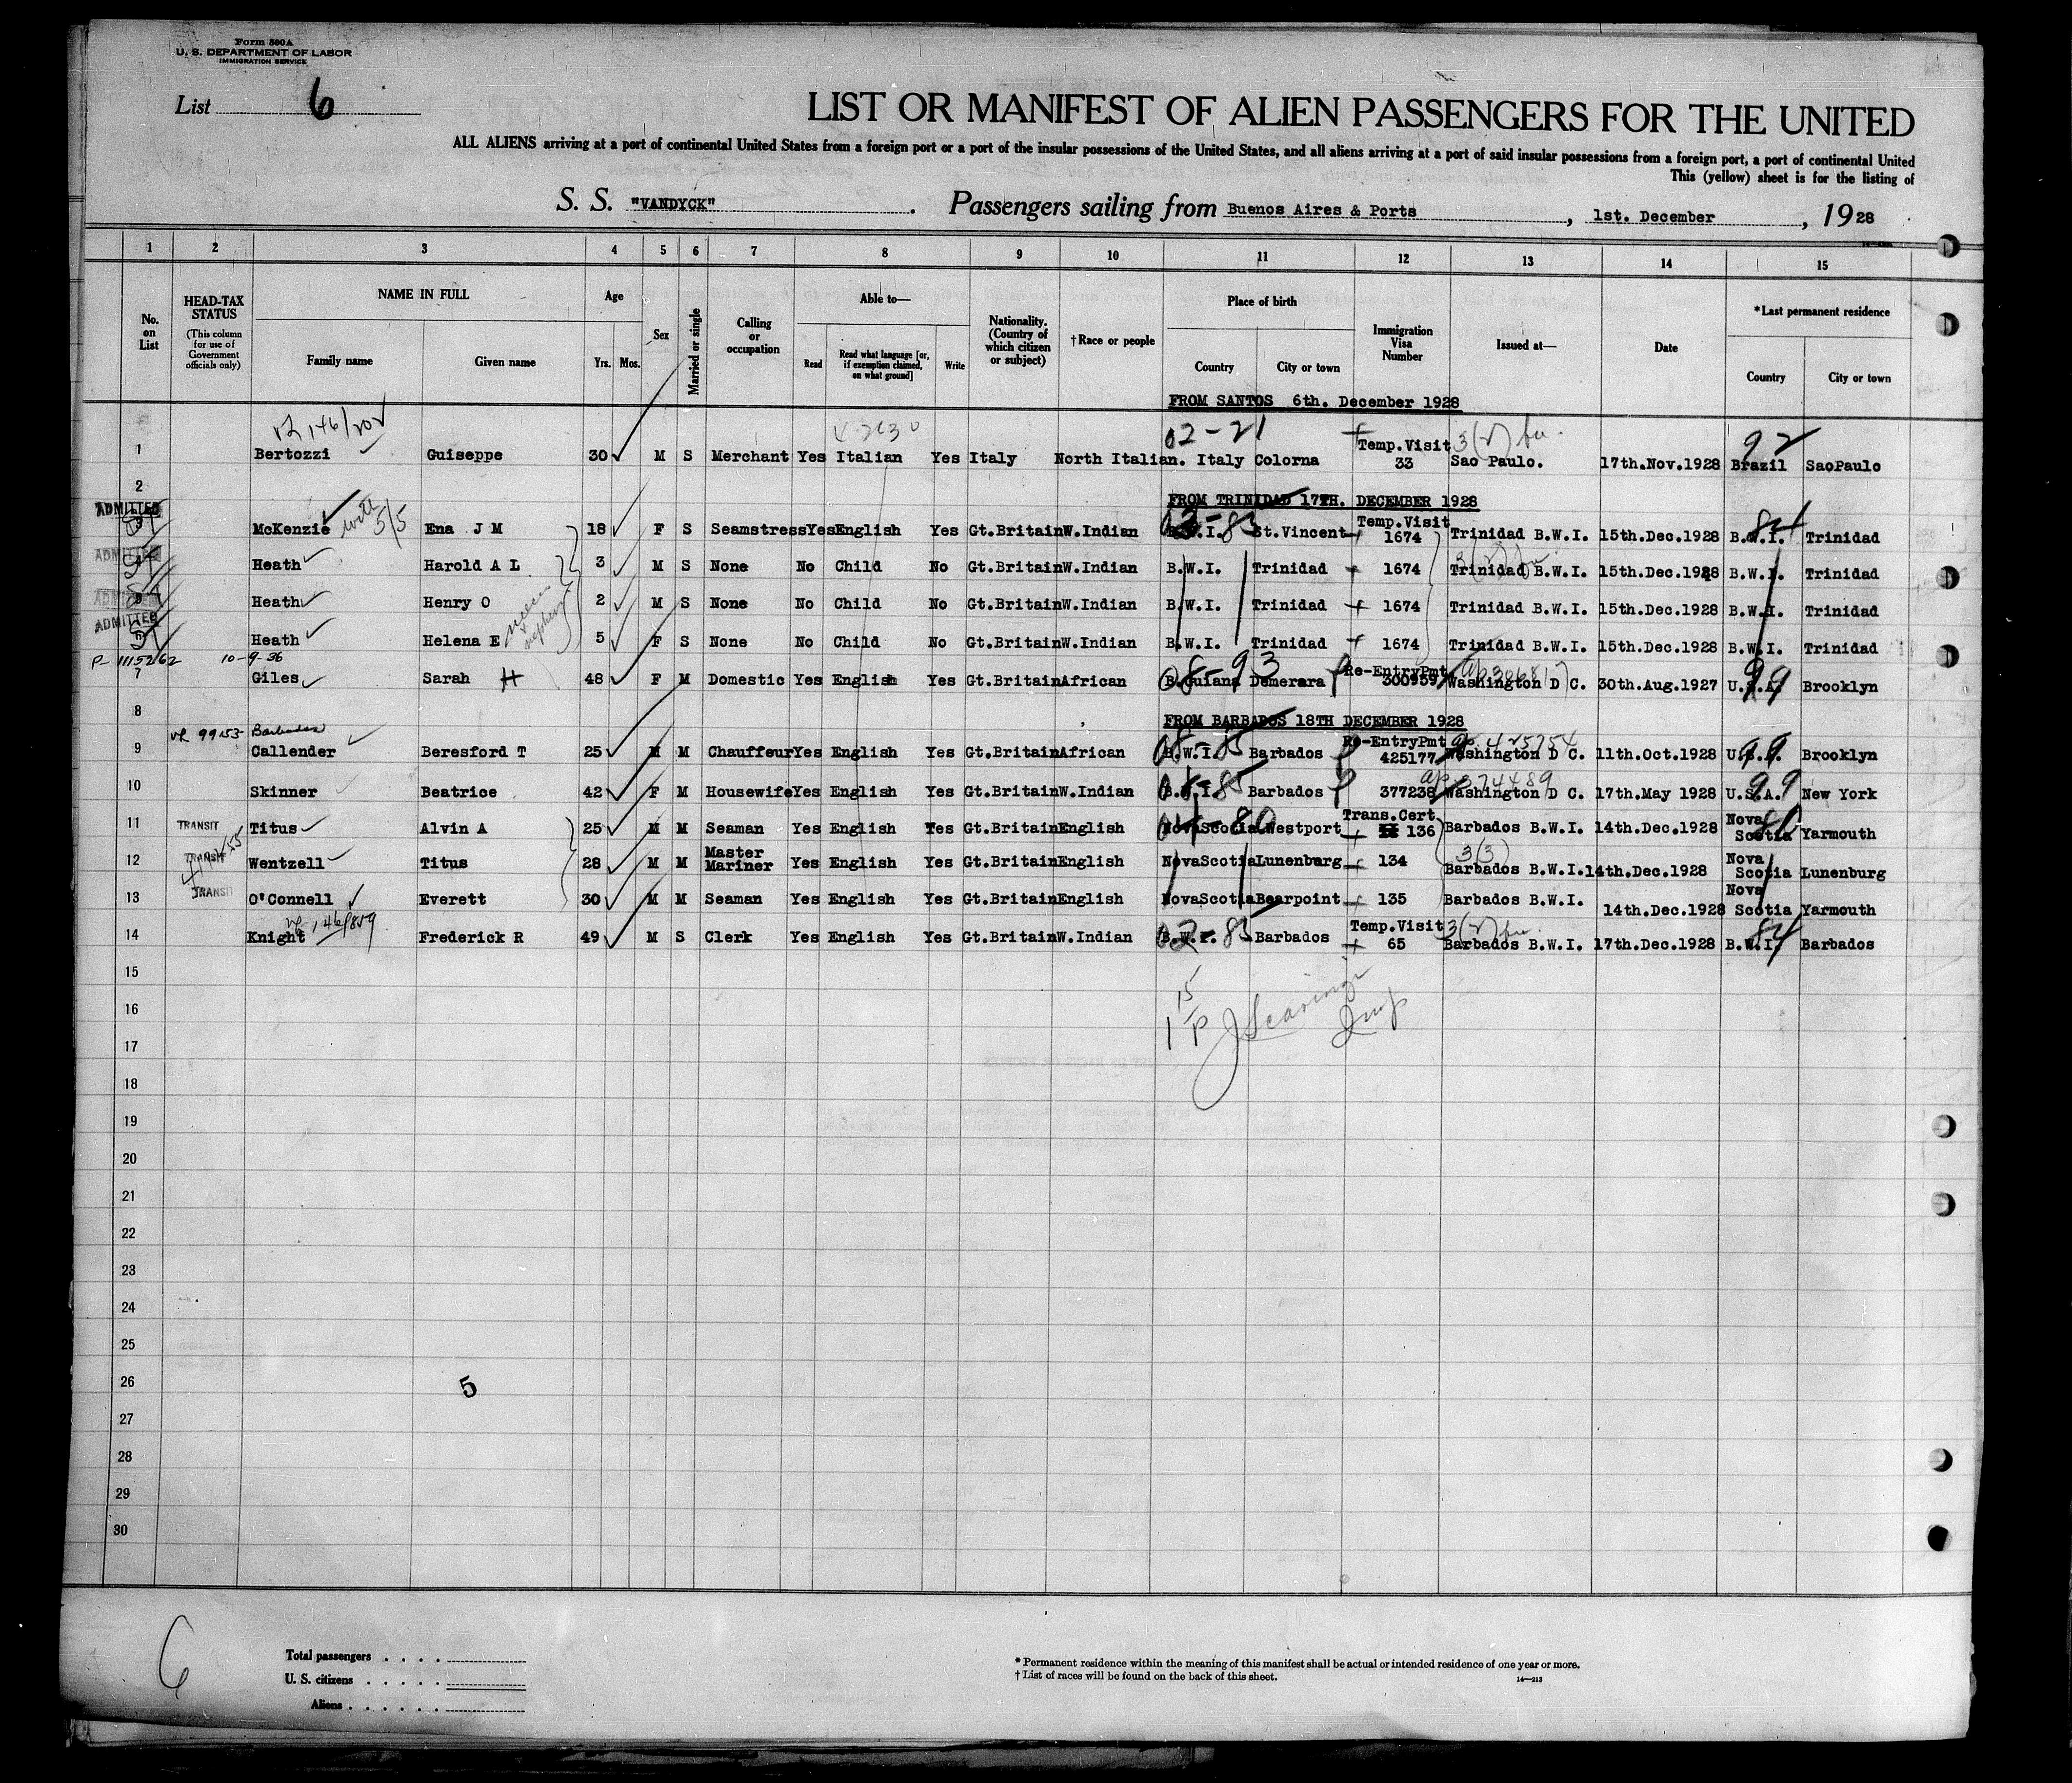 Form 500A
U. S. DEPARTMENT OF LABOR
IMMIGRATION SERVICE
List 6
LIST OR MANIFEST OF ALIEN PASSENGERS FOR THE UNITED
ALL ALIENS arriving at a port of continental United States from a foreign port or a port of the insular possessions of the United States, and all aliens arriving at a port of said insular possessions from a foreign port, a port of continental United
This (yellow) sheet is for the listing of
S. S. "VANDYCK". Passengers sailing from Buenos Aires & Ports, 1st. December, 1928
1 2 3 4 5 6 7 8 9 10 11 12 13 14 15
No. on List
HEAD-TAX STATUS (This column for use of Government officials only)
NAME IN FULL
Family name Given name
Age
Yrs. Mos.
Sex
Married or single
Calling or occupation
Able to—
Read Read what language [or, if exemption claimed, on what ground] Write
Nationality. (Country of which citizen or subject)
†Race or people
Place of birth
Country City or town
Immigration Visa Number
Issued at—
Date
*Last permanent residence
Country City or town
FROM SANTOS 6th. December 1928
02-21 92
1 Bertozzi Guiseppe 30 M S Merchant Yes Italian Yes Italy North Italian. Italy Colorna Temp.Visit 33 Sao Paulo. 17th.Nov.1928 Brazil SaoPaulo
2
FROM TRINIDAD 17TH. DECEMBER 1928
ADMITTED McKenzie with 5/5 Ena J M 18 F S Seamstress Yes English Yes Gt.Britain W.Indian B.W.I. St.Vincent Temp.Visit 1674 Trinidad B.W.I. 15th.Dec.1928 B.W.I. Trinidad
ADMITTED Heath Harold A L 3 M S None No Child No Gt.Britain W.Indian B.W.I. Trinidad 1674 Trinidad B.W.I. 15th.Dec.1928 B.W.I. Trinidad
ADMITTED Heath Henry O 2 M S None No Child No Gt.Britain W.Indian B.W.I. Trinidad 1674 Trinidad B.W.I. 15th.Dec.1928 B.W.I. Trinidad
ADMITTED Heath Helena E 5 F S None No Child No Gt.Britain W.Indian B.W.I. Trinidad 1674 Trinidad B.W.I. 15th.Dec.1928 B.W.I. Trinidad
P-1115262 10-9-36
7 Giles Sarah H 48 F M Domestic Yes English Yes Gt.Britain African B.Guiana Demerara Re-EntryPmt 300959 Washington D C. 30th.Aug.1927 U.S.A. Brooklyn
8
FROM BARBADOS 18TH DECEMBER 1928
Barbados
9 Callender Beresford T 25 M M Chauffeur Yes English Yes Gt.Britain African B.W.I. Barbados Re-EntryPmt 425177 Washington D C. 11th.Oct.1928 U.S.A. Brooklyn
10 Skinner Beatrice 42 F M Housewife Yes English Yes Gt.Britain W.Indian B.W.I. Barbados 377238 Washington D C. 17th.May 1928 U.S.A. New York
11 TRANSIT Titus Alvin A 25 M M Seaman Yes English Yes Gt.Britain English NovaScotia Westport Trans.Cert 136 Barbados B.W.I. 14th.Dec.1928 Nova Scotia Yarmouth
12 TRANSIT Wentzell Titus 28 M M Master Mariner Yes English Yes Gt.Britain English NovaScotia Lunenburg 134 Barbados B.W.I. 14th.Dec.1928 Nova Scotia Lunenburg
13 TRANSIT O'Connell Everett 30 M M Seaman Yes English Yes Gt.Britain English NovaScotia Bearpoint 135 Barbados B.W.I. 14th.Dec.1928 Nova Scotia Yarmouth
14 Knight Frederick R 49 M S Clerk Yes English Yes Gt.Britain W.Indian B.W.I. Barbados Temp.Visit 65 Barbados B.W.I. 17th.Dec.1928 B.W.I. Barbados
15
16
17
18
19
20
21
22
23
24
25
26
5
27
28
29
30
6
Total passengers
U. S. citizens
Aliens
* Permanent residence within the meaning of this manifest shall be actual or intended residence of one year or more.
† List of races will be found on the back of this sheet.
14—213